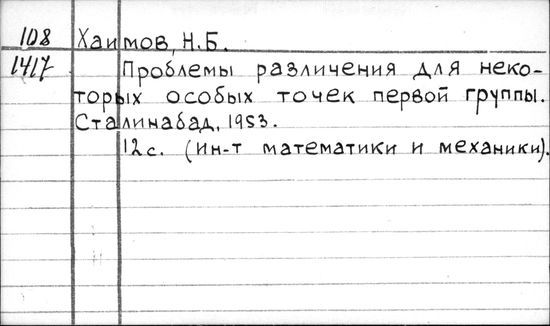 108 Хаимов, Н.Б.
1417 Проблемы различения для неко-
торых особых точек первой группы.
Сталинабад, 1953.
12с. (ин-т математики и механики).